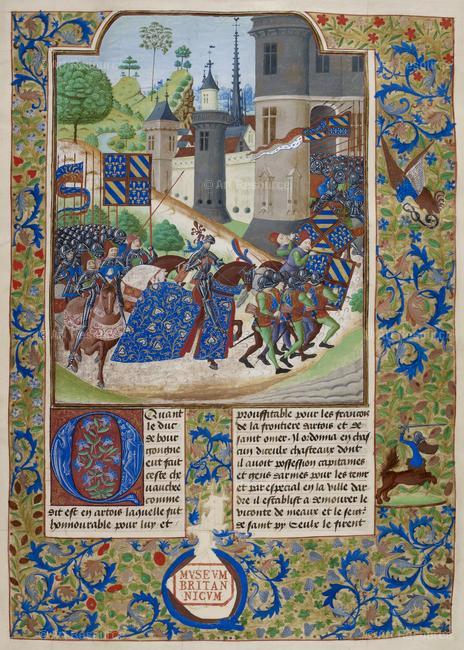 Quant
le duc
de bour
gougne
eut fait
ceste che
uauche
comme
dit est en artois laquelle fut
honnourable pour luy et
prouffitable pour les francois
de la frontiere dartois et de
saint omer. Il ordonna en chas
cun diceulx chasteaux dont
il auoit possession capitaines
et gens darmes pour les tenir
et par especial en la ville dar
dre il establist a demourer le
viconte de meaux et le seigr
de saint py Ceulx se tirent
MVSEVM
BRITAN
NICVM
© Art Resource